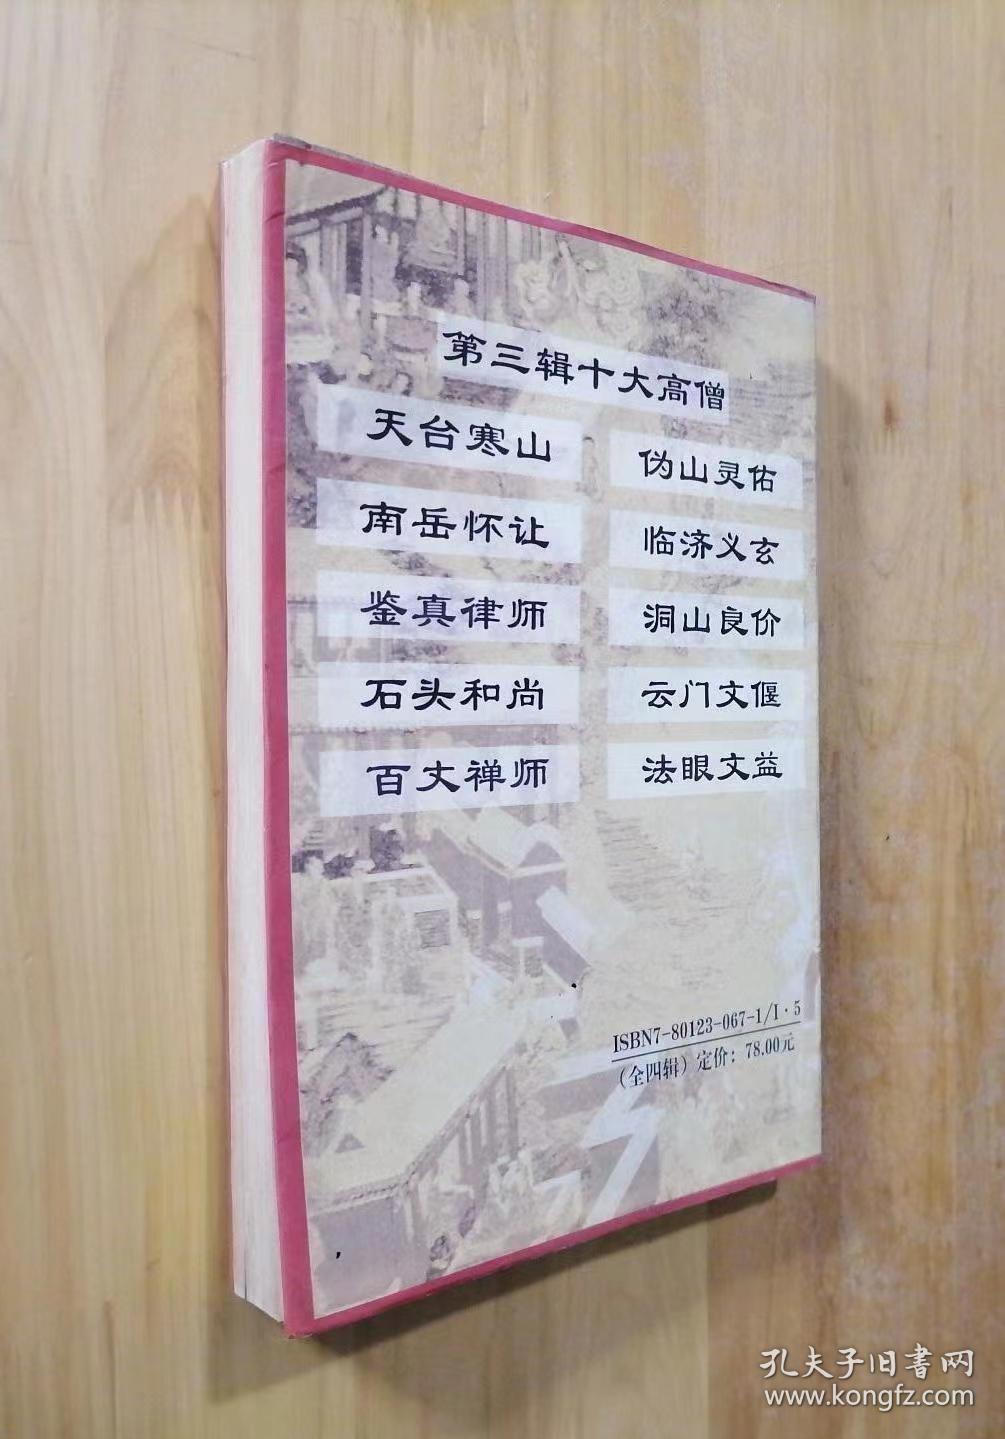 第三辑十大高僧
天台寒山
南岳怀让
鉴真律师
石头和尚
百丈禅师
伪山灵佑
临济义玄
洞山良价
云门文偃
法眼文益
ISBN7-80123-067-1/I·5
(全四辑)定价：78.00元
孔夫子旧书网
www.kongfz.com